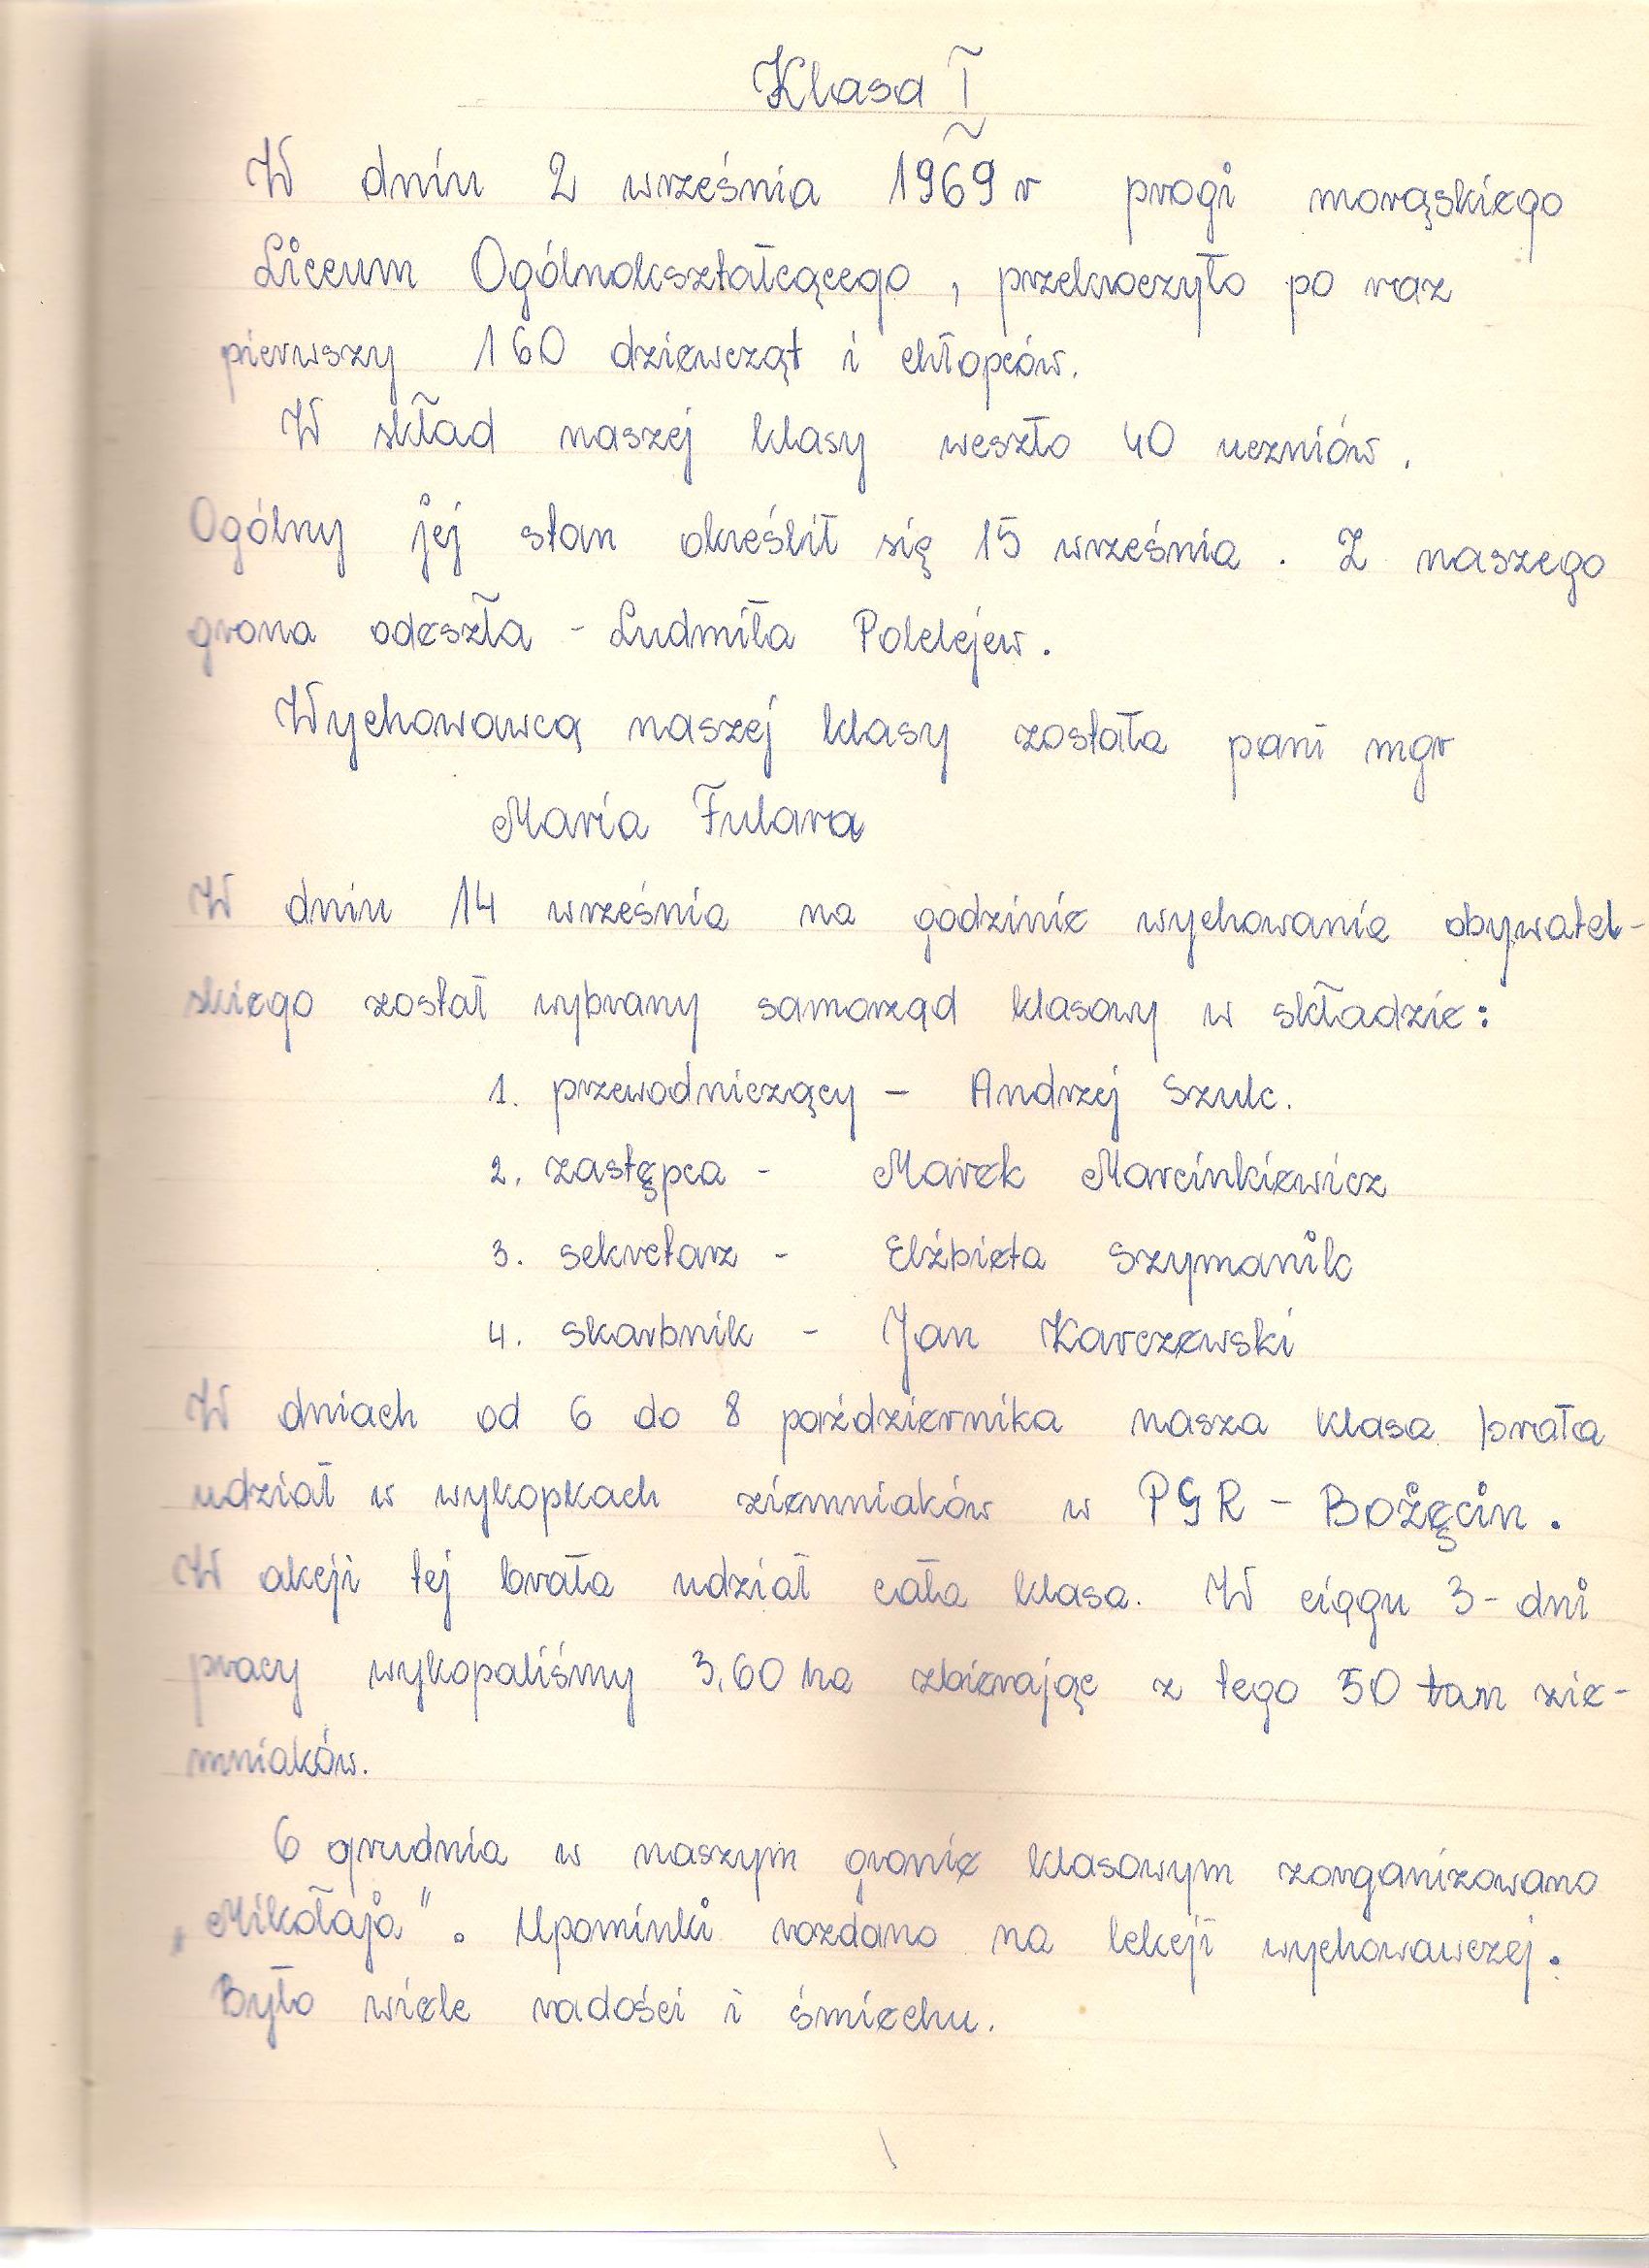 Klasa I
W dniu 2 września 1969 r progi morąskiego
Liceum Ogólnokształcącego, przekroczyło po raz
pierwszy 160 dziewcząt i chłopców.
W skład naszej klasy weszło 40 uczniów.
Ogólny jej stan określił się 15 września. Z naszego
grona odeszła - Ludmiła Polelejew.
Wychowawcą naszej klasy została pani mgr
Maria Fulara
W dniu 14 września na godzinie wychowania obywatel-
skiego został wybrany samorząd klasowy w składzie:
1. przewodniczący - Andrzej Szulc.
2. zastępca - Marek Marcinkiewicz
3. sekretarz - Elżbieta Szymanik
4. skarbnik - Jan Karczewski
W dniach od 6 do 8 października nasza klasa brała
udział w wykopkach ziemniaków w PGR - BOŻĘCIN.
W akcji tej brała udział cała klasa. W ciągu 3-dni
pracy wykopaliśmy 3,60 ha zbierając z tego 50 ton zie-
mniaków.
6 grudnia w naszym gronie klasowym zorganizowano
„Mikołaja". Upominki rozdano na lekcji wychowawczej.
Było wiele radości i śmiechu.